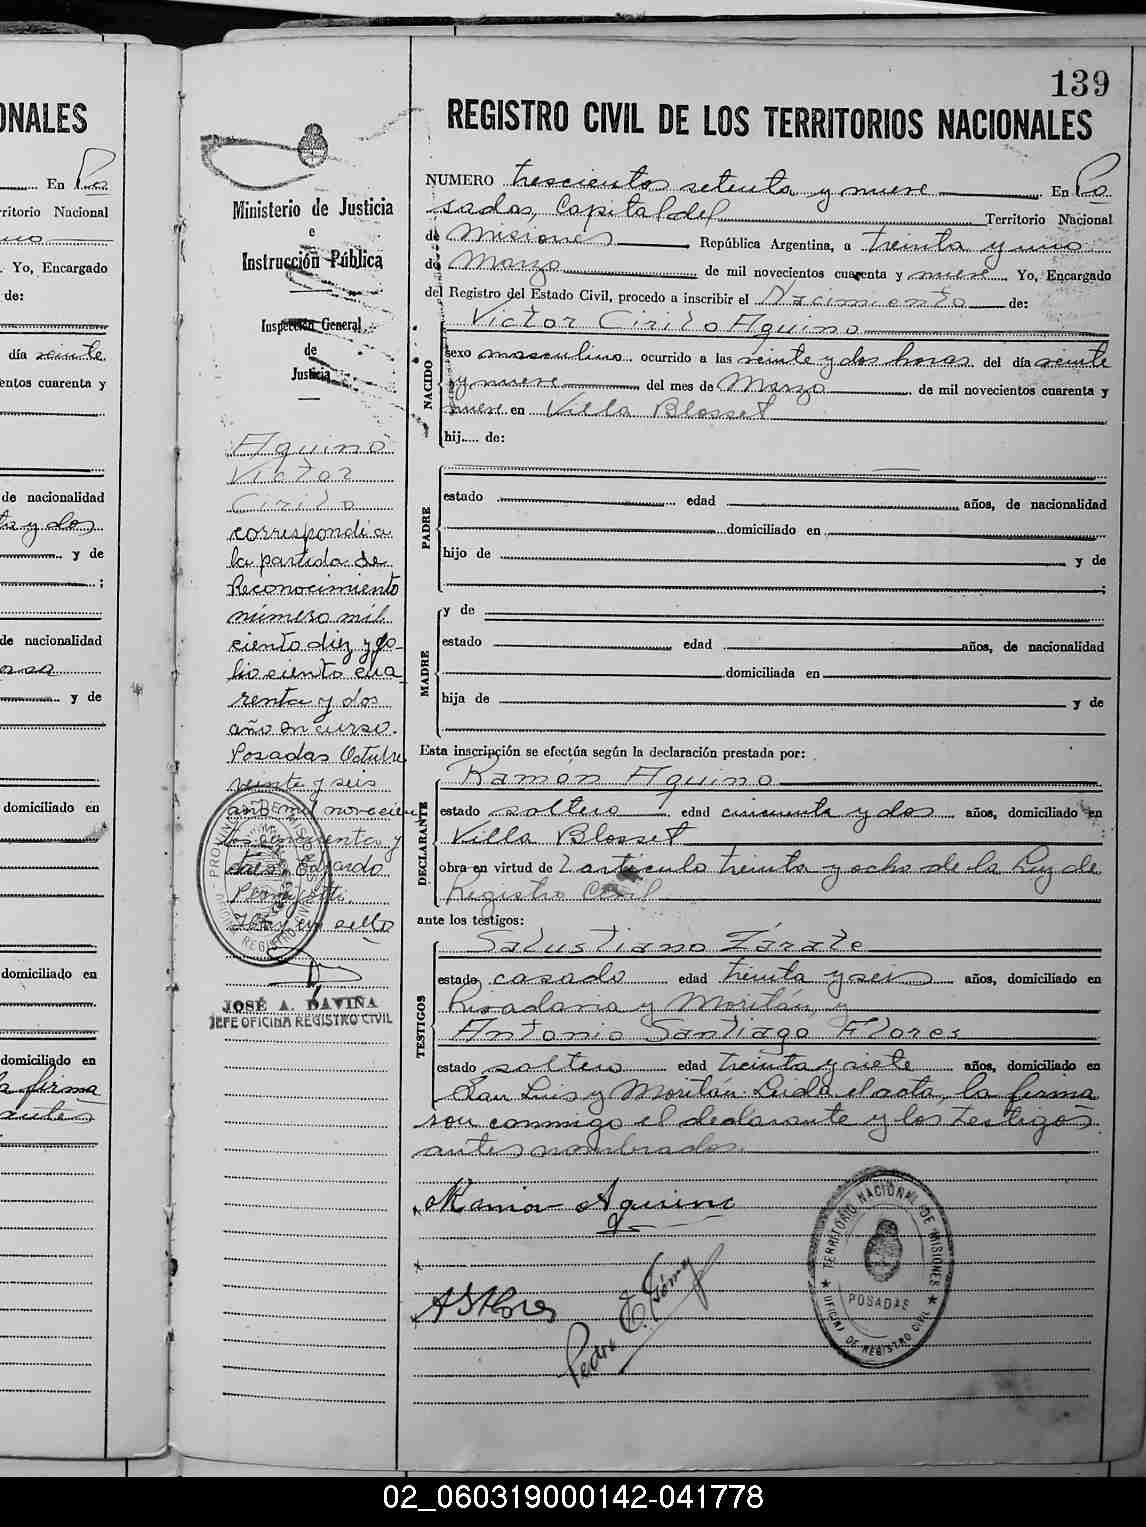 139
ONALES
En Po
rritorio Nacional
. Yo, Encargado
de:
día veinte
entos cuarenta y
de nacionalidad
ta y dos
y de
;
de nacionalidad
y de
domiciliado en
domiciliado en
domiciliado en
a firma
antes
Ministerio de Justicia
e
Instrucción Pública
Inspección General
de
Justicia
Aquino
Victor
Cirilo
correspondía
la partida de
Reconocimiento
número mil
ciento diez y fo-
lio ciento cua
renta y dos
año en curso.
Posadas Octubre
veinte y seis
año mil novecien
tos cincuenta y
Edgardo
Hay un sello
PROVINCIA DE MISIONES
REGISTRO CIVIL
JOSÉ A. DAVIÑA
JEFE OFICINA REGISTRO CIVIL
REGISTRO CIVIL DE LOS TERRITORIOS NACIONALES
NUMERO trescientos setenta y nueve En Po
sadas, Capital del Territorio Nacional
de Misiones República Argentina, a treinta y uno
de Marzo de mil novecientos cuarenta y nueve. Yo, Encargado
del Registro del Estado Civil, procedo a inscribir el Nacimiento de:
Victor Cirilo Aquino
NACIDO
sexo masculino ocurrido a las veinte y dos horas del día veinte
y nueve del mes de Marzo de mil novecientos cuarenta y
nueve en Villa Blosset
hij..... de:
PADRE
estado edad años, de nacionalidad
domiciliado en
hijo de y de
;
MADRE
y de
estado edad años, de nacionalidad
domiciliada en
hija de y de
Esta inscripción se efectúa según la declaración prestada por:
DECLARANTE
Ramón Aquino
estado soltero edad cincuenta y dos años, domiciliado en
Villa Blosset
obra en virtud de l articulo treinta y ocho de la Ley de
Registro Civil
ante los testigos:
TESTIGOS
Salustiano Zárate
estado casado edad treinta y seis años, domiciliado en
Rivadavia y Moritán, y
Antonio Santiago Flores
estado soltero edad treinta y siete años, domiciliado en
San Luis y Moritán Leida el acta, la firma
ron conmigo el declarante y los testigos
antes nombrados.
Aquino
A S Flores
Pedro E. Gómez
TERRITORIO NACIONAL DE MISIONES
POSADAS
OFICINA DE REGISTRO CIVIL
02_060319000142-041778